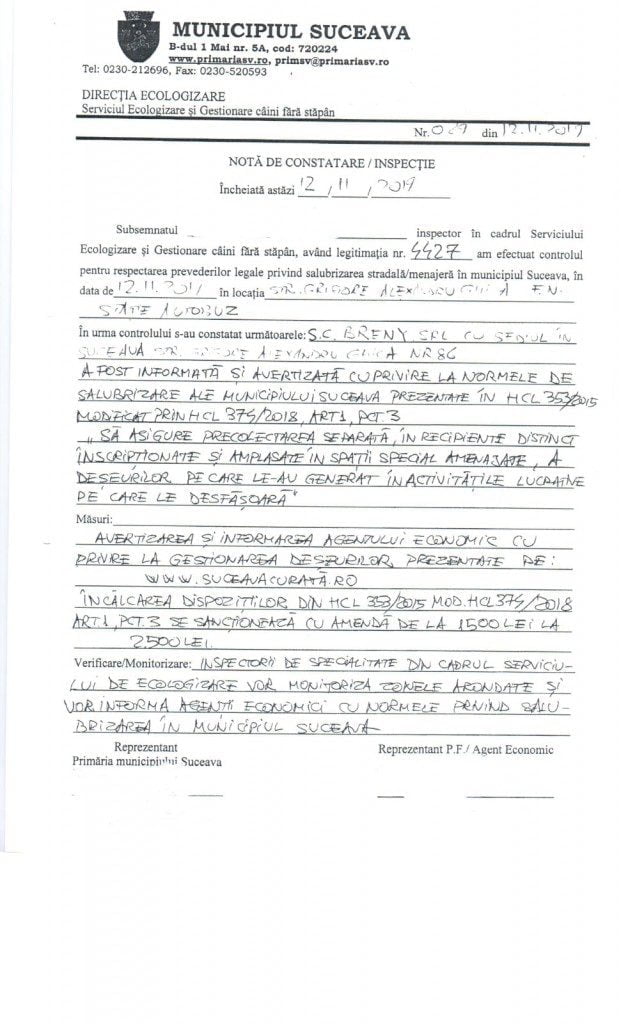 MUNICIPIUL SUCEAVA
B-dul 1 Mai nr. 5A, cod: 720224
www.primariasv.ro, primsv@primariasv.ro
Tel: 0230-212696, Fax: 0230-520593
DIRECȚIA ECOLOGIZARE
Serviciul Ecologizare și Gestionare câini fără stăpân
Nr. din 12.11.2019
NOTĂ DE CONSTATARE / INSPECȚIE
Încheiată astăzi 12 / 11 / 2019
Subsemnatul inspector în cadrul Serviciului
Ecologizare și Gestionare câini fără stăpân, având legitimația nr. 4427 am efectuat controlul
pentru respectarea prevederilor legale privind salubrizarea stradală/menajeră în municipiul Suceava, în
data de 12.11.2019 în locația STR. GRIGORE ALEXANDRU GHICA F.N.
STAȚIE AUTOBUZ
În urma controlului s-au constatat următoarele: S.C. BRENY SRL CU SEDIUL ÎN
SUCEAVA STR. GRIGORE ALEXANDRU GHICA NR 86
A FOST INFORMATĂ ȘI AVERTIZATĂ CU PRIVIRE LA NORMELE DE
SALUBRIZARE ALE MUNICIPIULUI SUCEAVA PREZENTATE ÎN HCL 353/2015
MODIFICAT PRIN HCL 374/2018, ART1, PCT. 3
„SĂ ASIGURE PRECOLECTAREA SEPARATĂ, ÎN RECIPIENTE DISTINCT
ÎNSCRIPȚIONATE ȘI AMPLASATE ÎN SPAȚII SPECIAL AMENAJATE, A
DEȘEURILOR PE CARE LE-AU GENERAT ÎN ACTIVITĂȚILE LUCRATIVE
PE CARE LE DESFĂȘOARĂ"
Măsuri:
AVERTIZAREA ȘI INFORMAREA AGENTULUI ECONOMIC CU
PRIVIRE LA GESTIONAREA DEȘEURILOR PREZENTATE PE:
WWW.SUCEAVACURATĂ.RO
ÎNCĂLCAREA DISPOZIȚIILOR DIN HCL 353/2015 MOD. HCL 374/2018
ART.1, PCT. 3 SE SANCȚIONEAZĂ CU AMENDĂ DE LA 1500 LEI LA
2500 LEI.
Verificare/Monitorizare: INSPECTORII DE SPECIALITATE DIN CADRUL SERVICIU-
LUI DE ECOLOGIZARE VOR MONITORIZA ZONELE ARONDATE ȘI
VOR INFORMA AGENȚII ECONOMICI CU NORMELE PRIVIND SALU-
BRIZAREA ÎN MUNICIPIUL SUCEAVA
Reprezentant Reprezentant P.F./ Agent Economic
Primăria municipiului Suceava